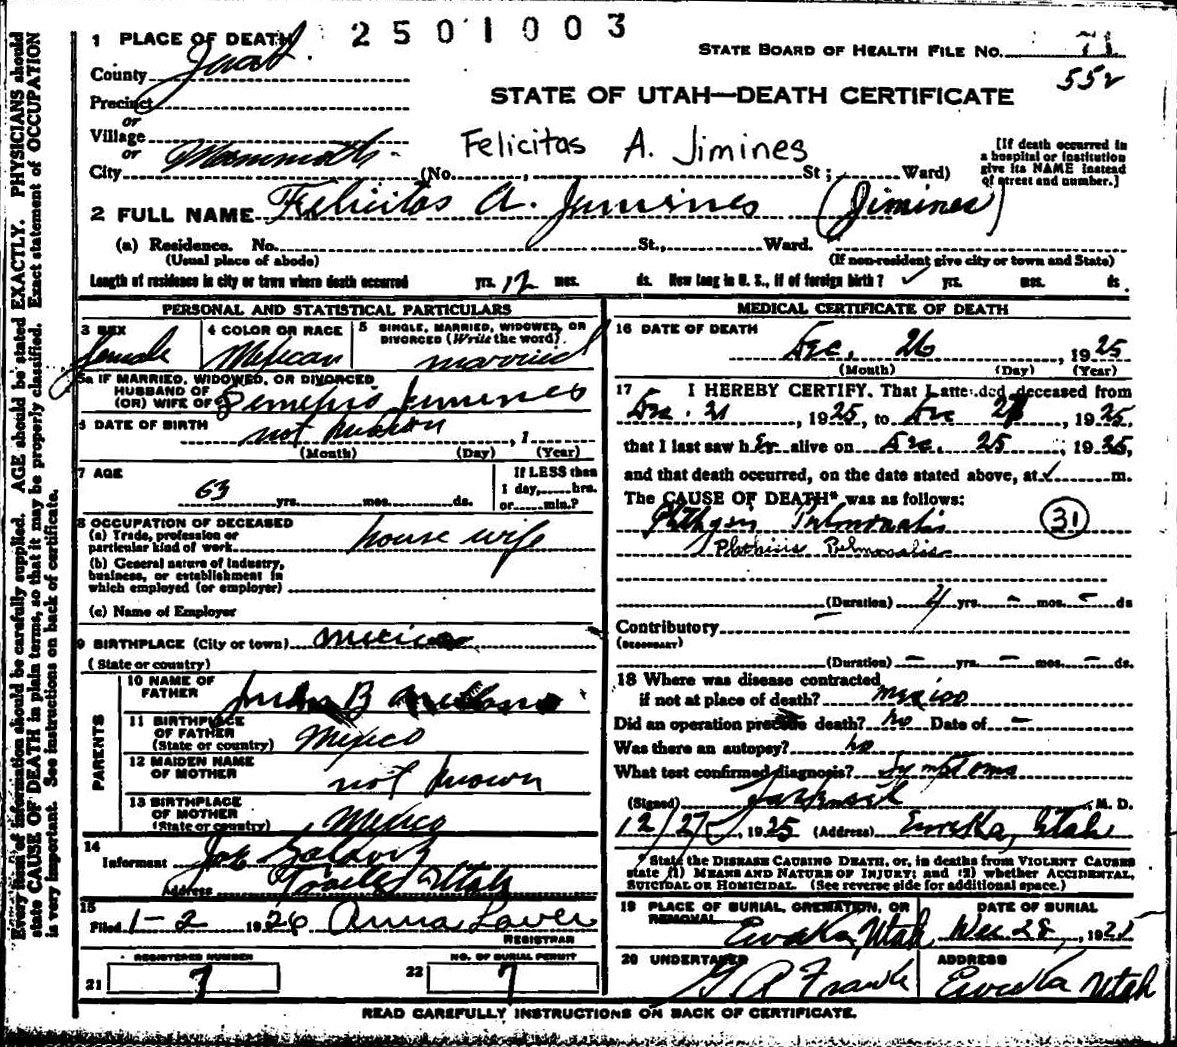 2501003
1 PLACE OF DEATH
STATE BOARD OF HEALTH FILE NO. 71
552
County Juab
Precinct
or
Village
or
City Mammoth
STATE OF UTAH—DEATH CERTIFICATE
Felicitas A. Jimines
(No. St; Ward)
[If death occurred in a hospital or institution give its NAME instead of street and number.]
2 FULL NAME Felicitas A. Jimines (Jimines)
(a) Residence. No. St., Ward.
(Usual place of abode) (If non-resident give city or town and State)
Length of residence in city or town where death occurred yrs. 12 mos. ds. How long in U. S., if of foreign birth? ✓ yrs. mos. ds.
PERSONAL AND STATISTICAL PARTICULARS
3 SEX female
4 COLOR OR RACE Mexican
5 SINGLE, MARRIED, WIDOWED, OR DIVORCED (Write the word). married
5a IF MARRIED, WIDOWED, OR DIVORCED
HUSBAND OF
(OR) WIFE OF Jimines
6 DATE OF BIRTH not known, 1
(Month) (Day) (Year)
7 AGE 63 yrs. mos. ds.
If LESS than 1 day, hrs. or min.?
8 OCCUPATION OF DECEASED
(a) Trade, profession or particular kind of work house wife
(b) General nature of industry, business, or establishment in which employed (or employer)
(c) Name of Employer
9 BIRTHPLACE (City or town) Mexico
(State or country)
PARENTS
10 NAME OF FATHER B
11 BIRTHPLACE OF FATHER (State or country) Mexico
12 MAIDEN NAME OF MOTHER not known
13 BIRTHPLACE OF MOTHER (State or country) Mexico
14 Informant
Address Utah
15 Filed 1-2 1926 Anna Laven
REGISTRAR
REGISTERED NUMBER
21 7
NO. OF BURIAL PERMIT
22 7
MEDICAL CERTIFICATE OF DEATH
16 DATE OF DEATH
Dec. 26, 1925
(Month) (Day) (Year)
17 I HEREBY CERTIFY, That I attended deceased from
Dec. 21, 1925, to Dec 26, 1925,
that I last saw her alive on Dec. 25, 1925,
and that death occurred, on the date stated above, at ✓ m.
The CAUSE OF DEATH* was as follows:
Phthysis Pulmonalis (31)
Phthisis Pulmonalis
(Duration) yrs. – mos. – ds
Contributory
(SECONDARY)
(Duration) – yrs. – mos. – ds.
18 Where was disease contracted
if not at place of death? Mexico
Did an operation precede death? no Date of –
Was there an autopsy? no
What test confirmed diagnosis? Symptoms
(Signed) M. D.
12/27, 1925 (Address) Eureka, Utah
* State the DISEASE CAUSING DEATH, or, in deaths from VIOLENT CAUSES
state (1) MEANS AND NATURE OF INJURY; and (2) whether ACCIDENTAL,
SUICIDAL OR HOMICIDAL. (See reverse side for additional space.)
19 PLACE OF BURIAL, CREMATION, OR REMOVAL Eureka, Utah
DATE OF BURIAL Dec 28, 1925
20 UNDERTAKER G A Frank
ADDRESS Eureka Utah
READ CAREFULLY INSTRUCTIONS ON BACK OF CERTIFICATE.
Every item of information should be carefully supplied. AGE should be stated EXACTLY. PHYSICIANS should
state CAUSE OF DEATH in plain terms, so that it may be properly classified. Exact statement of OCCUPATION
is very important. See instructions on back of certificate.